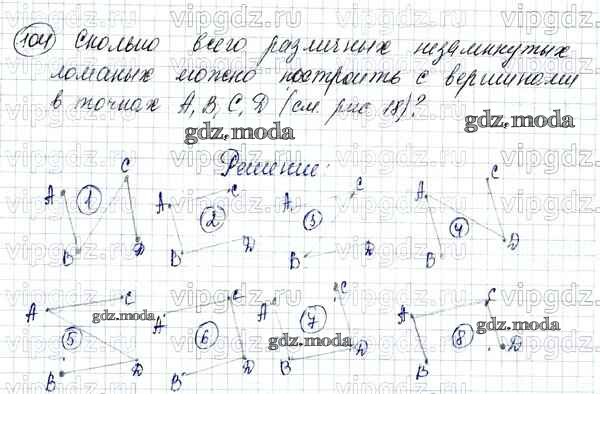 104 Сколько всего различных незамкнутых
ломаных можно построить с вершинами
в точках A, B, C, D (см. рис 18)?
gdz.moda
gdz.moda
Решение:
A B C D 1
A B C D 2
A B C D 3
A B C D 4
A B C D 5
gdz.moda
A B C D 6
A B C D 7
gdz.moda
A B C D 8
vipgdz.ru